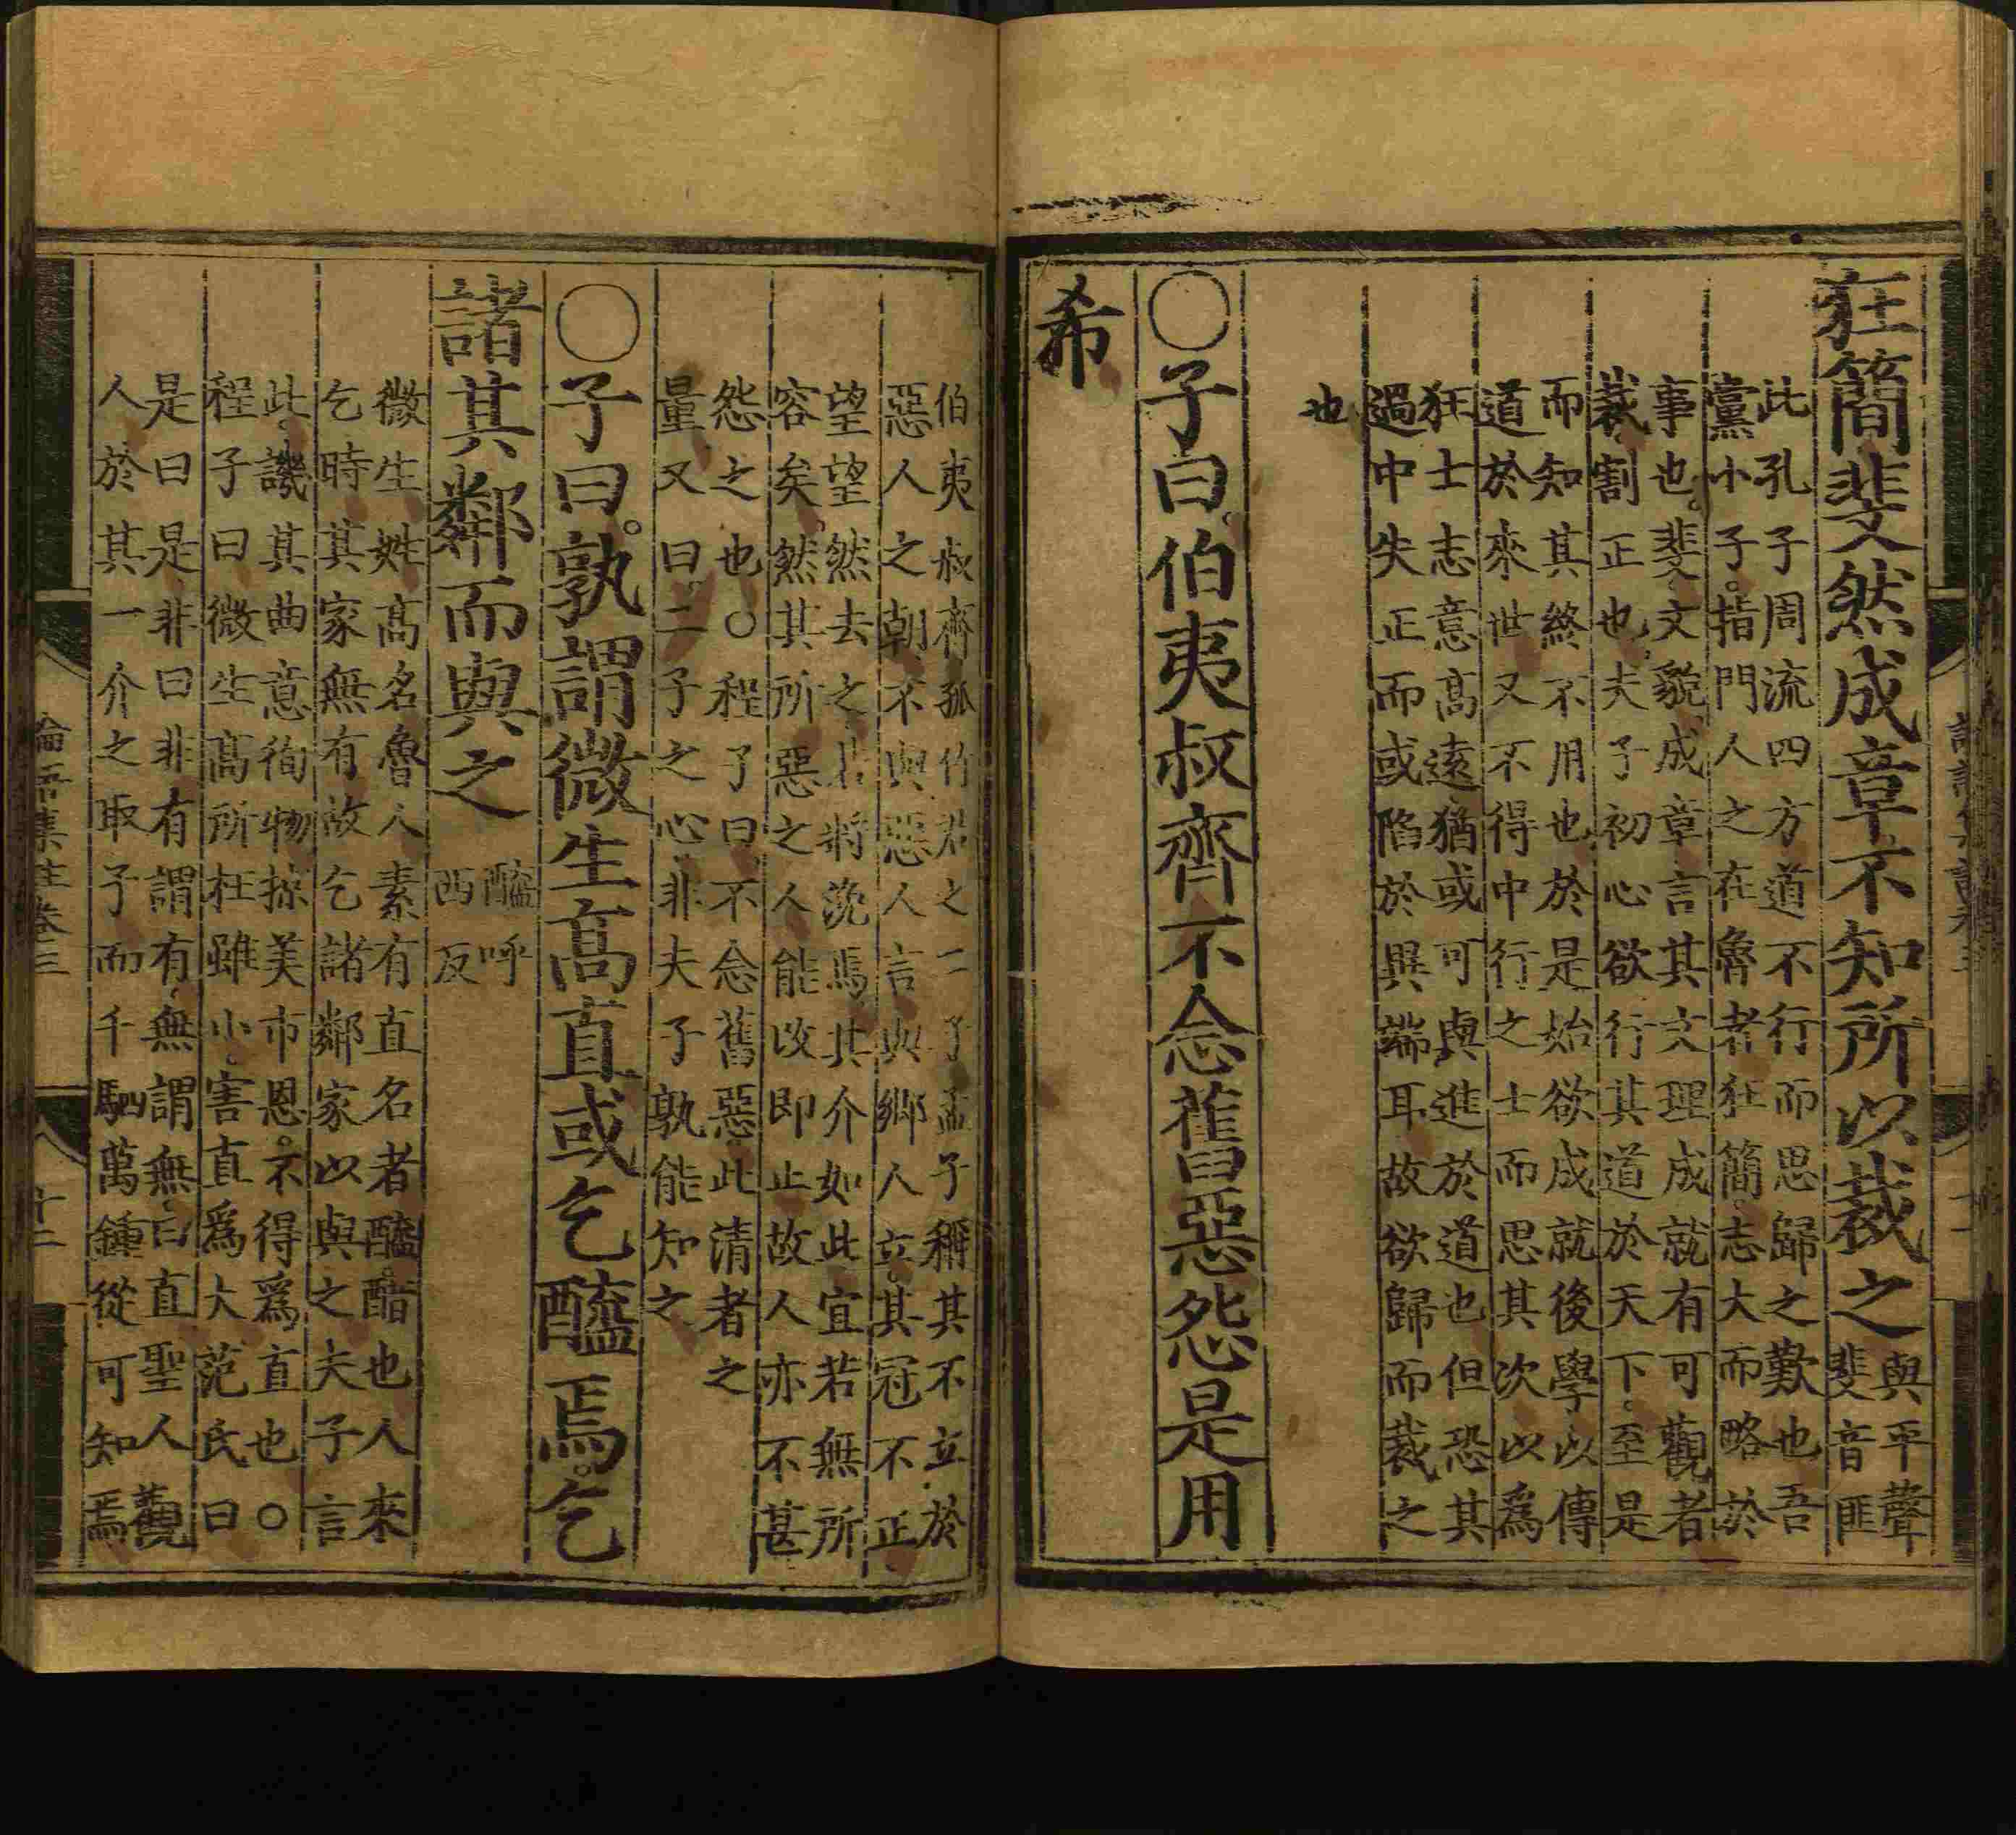 狂簡斐然成章不知所以裁之
與平聲
斐音匪
此孔子周流四方道不行而思歸之歎也吾
黨小子指門人之在魯者狂簡志大而略於
事也斐文貌成章言其文理成就有可觀者
裁割正也夫子初心欲行其道於天下至是
而知其終不用也於是始欲成就後學以傳
道於來世又不得中行之士而思其次以爲
狂士志意高遠猶或可與進於道也但恐其
過中失正而或陷於異端耳故欲歸而裁之
也
〇子曰伯夷叔齊不念舊惡怨是用
希
伯夷叔齊孤竹君之二子孟子稱其不立於
惡人之朝不與惡人言與鄉人立其冠不正
望望然去之若將浼焉其介如此宜若無所
容矣然其所惡之人能改即止故人亦不甚
怨之也〇程子曰不念舊惡此清者之
量又曰二子之心非夫子孰能知之
〇子曰孰謂微生高直或乞醯焉乞
諸其鄰而與之
醯呼
西反
微生姓高名魯人素有直名者醯醋也人來
乞時其家無有故乞諸鄰家以與之夫子言
此譏其曲意徇物掠美市恩不得爲直也〇
程子曰微生高所枉雖小害直爲大范氏曰
是曰是非曰非有謂有無謂無曰直聖人觀
人於其一介之取予而千駟萬鍾從可知焉
論語集註卷三
十二